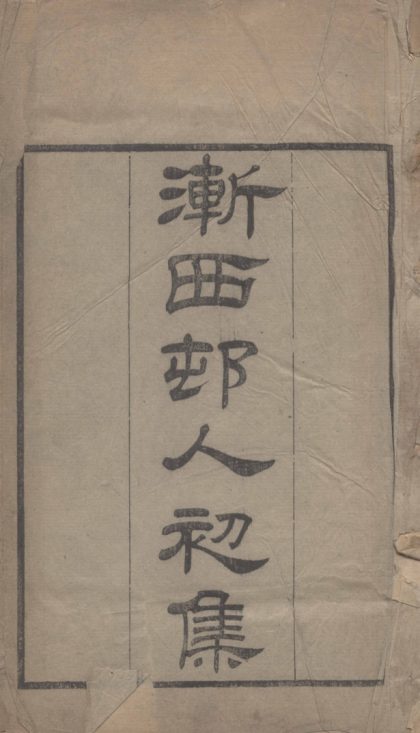 漸西邨人初集